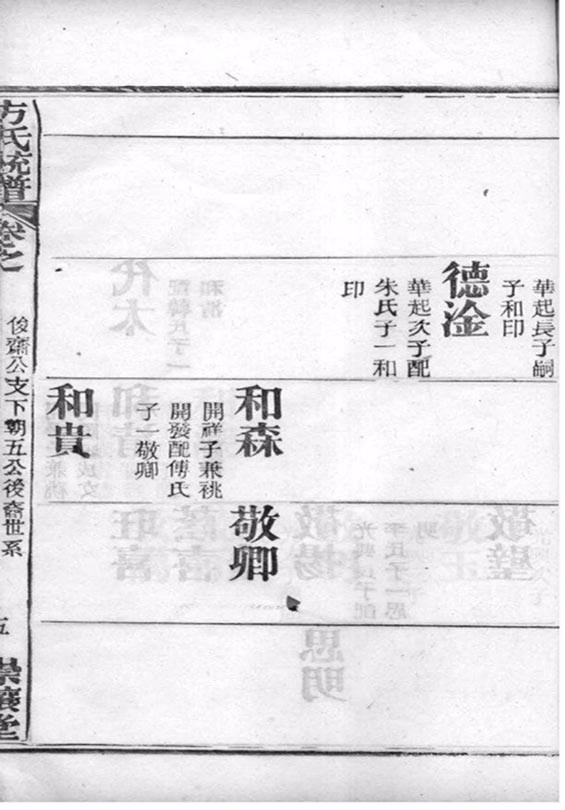 華起長子嗣
子和印
德淦
華起次子配
朱氏子一和
印
和森
開祥子兼祧
開發配傅氏
子一敬卿
和貴
敬卿
方氏統譜
卷之
俊齋公支下朝五公後裔世系
五